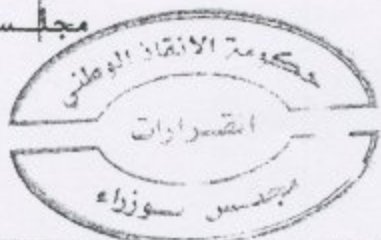 مجلس
حكومة الانقاذ الوطني
القرارات
مجلس الوزراء